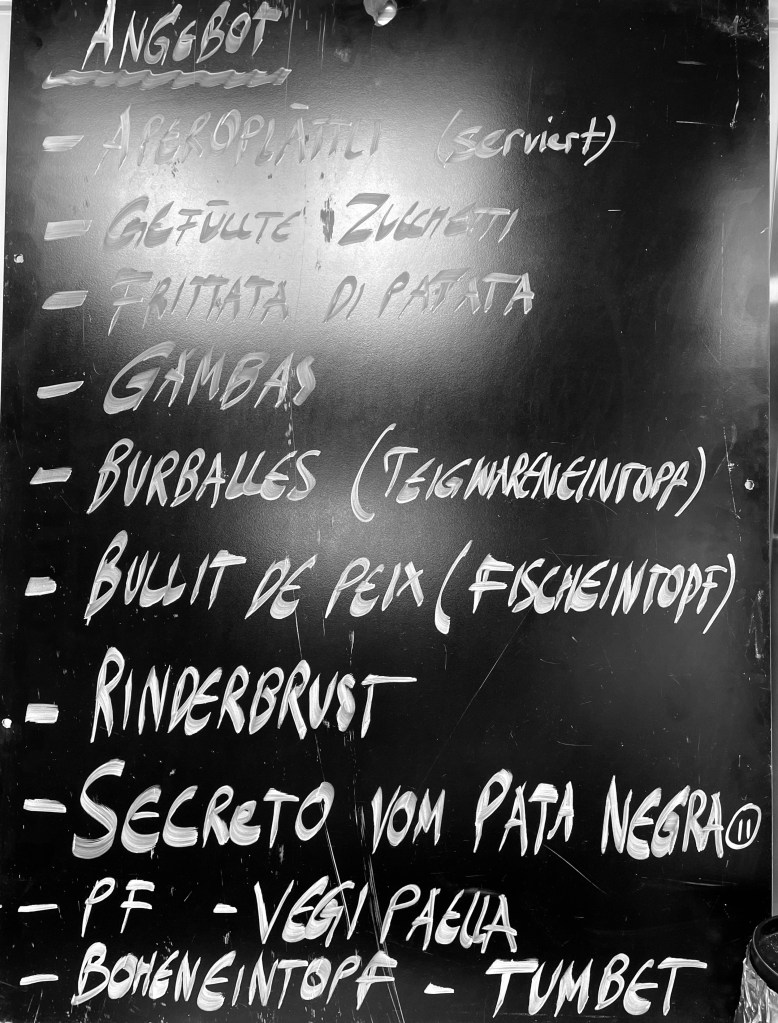 ANGEBOT
- APEROPLÄTTLI (serviert)
- GEFÜLLTE ZUCCHETTI
- FRITTATA DI PATATA
- GAMBAS
- BURBALLES (TEIGWARENEINTOPF)
- BULLIT DE PEIX (FISCHEINTOPF)
- RINDERBRUST
- SECReTO VOM PATA NEGRA
- PF - VEGI PAELLA
- BOHENEINTOPF - TUMBET